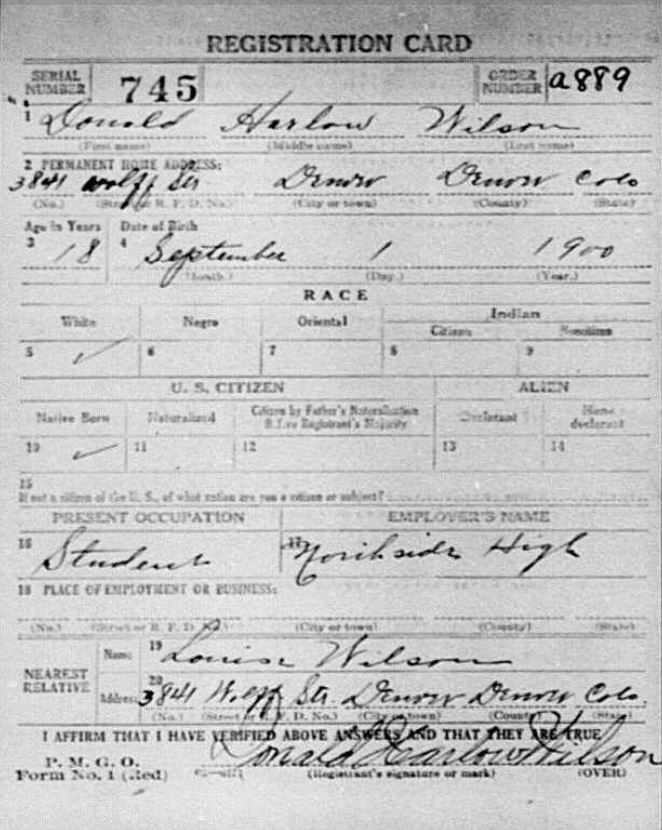 REGISTRATION CARD
SERIAL NUMBER 745 ORDER NUMBER a889
1 Donald Harlow Wilson
(First name) (Middle name) (Last name)
2 PERMANENT HOME ADDRESS:
3841 Wolff Str Denver Denver Colo
(No.) (Street or R. F. D. No.) (City or town) (County) (State)
Age in Years Date of Birth
3 18 4 September 1 1900
(Month.) (Day.) (Year.)
RACE
White Negro Oriental Indian
Citizen Noncitizen
5 ✓ 6 7 8 9
U. S. CITIZEN ALIEN
Native Born Naturalized Citizen by Father's Naturalization Before Registrant's Majority Declarant Non-declarant
10 ✓ 11 12 13 14
15
If not a citizen of the U. S., of what nation are you a citizen or subject?
PRESENT OCCUPATION EMPLOYER'S NAME
16 Student 17 Northside High
18 PLACE OF EMPLOYMENT OR BUSINESS:
(No.) (Street or R. F. D. No.) (City or town) (County) (State)
NEAREST RELATIVE
Name 19 Louise Wilson
Address 20 3841 Wolff Str. Denver Denver Colo.
(No.) (Street or R. F. D. No.) (City or town) (County) (State)
I AFFIRM THAT I HAVE VERIFIED ABOVE ANSWERS AND THAT THEY ARE TRUE
P. M. G. O.
Form No. 1 (Red) Donald Harlow Wilson
(Registrant's signature or mark) (OVER)